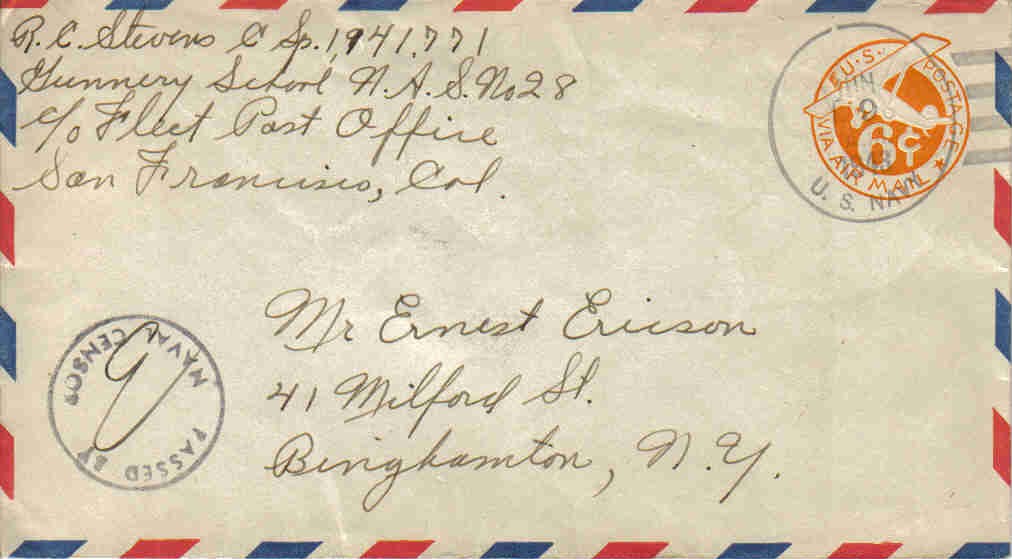 R. C. Stevens C Sp. 1941771
Gunnery School N. A. S. No 28
c/o Fleet Post Office
San Francisco, Cal.
U.S. POSTAGE
6¢
VIA AIR MAIL
JUN
9
U. S. NAVY
Mr Ernest Ericson
41 Milford St.
Binghamton, N. Y.
PASSED BY
NAVAL CENSOR